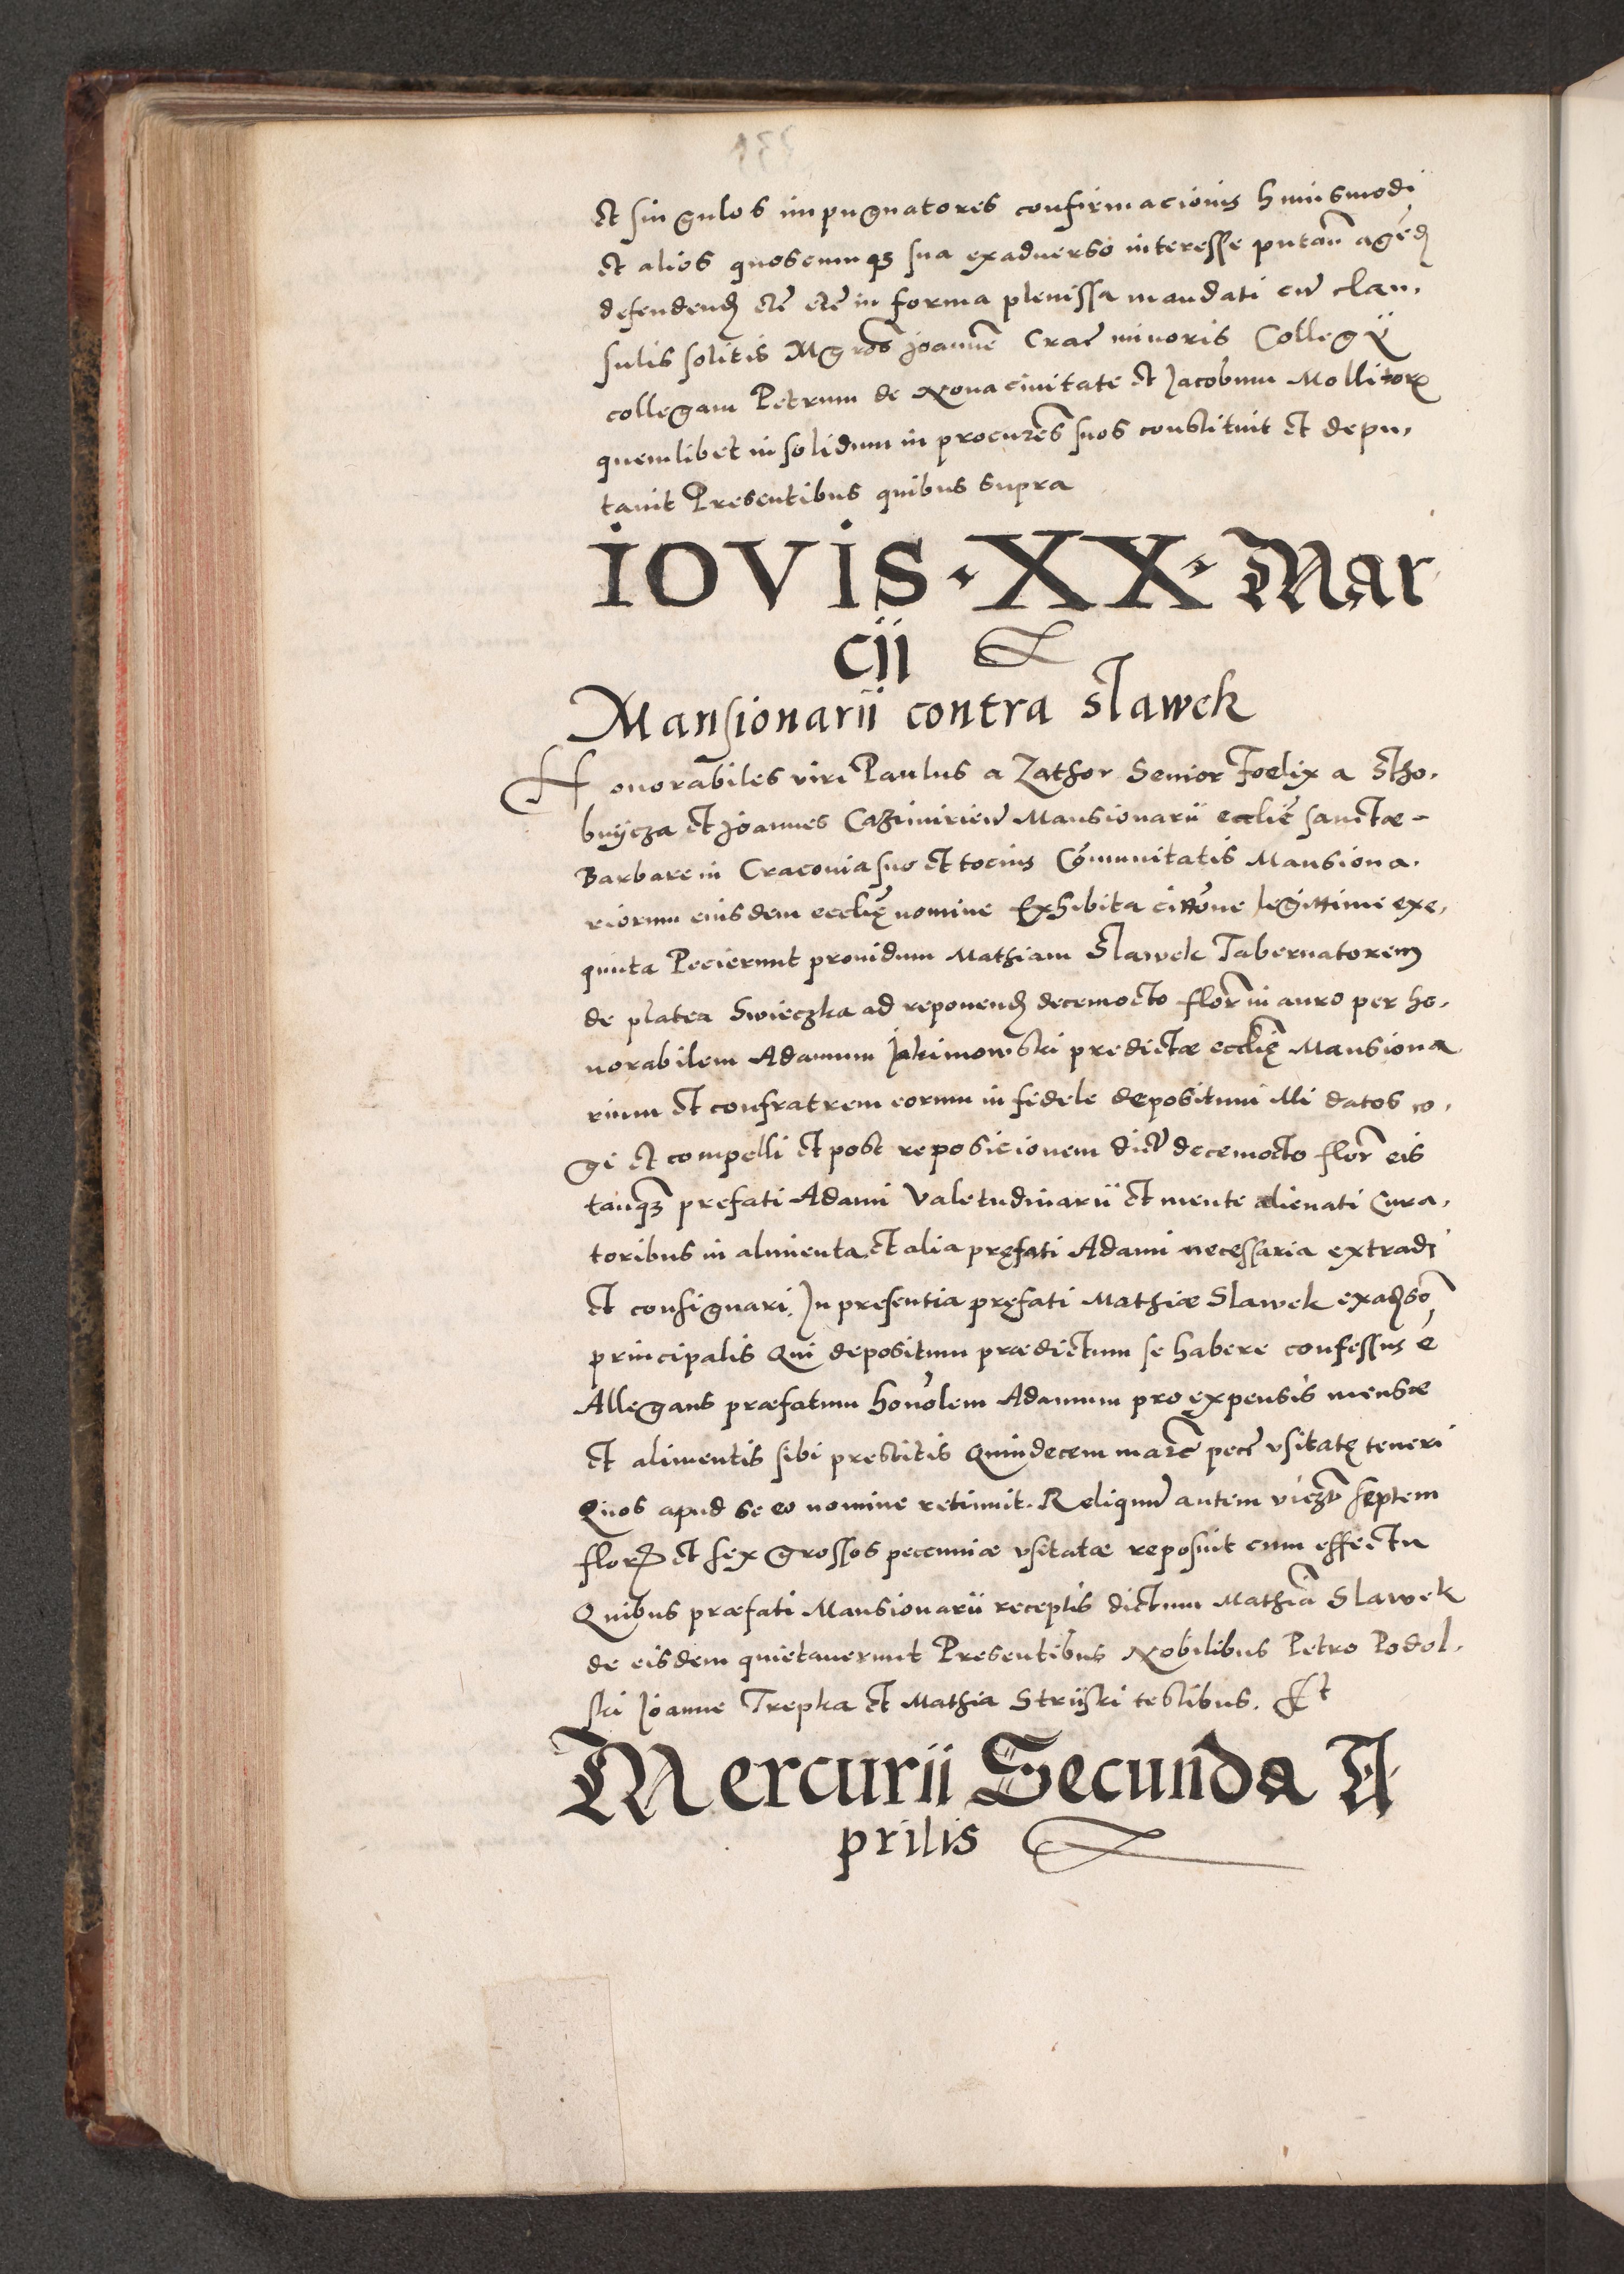 et singulos impugnatores confirmacionis huiusmodi
et alios quoscumqꝫ sua exadverso interesse putan̄ agen̄d
defendend etc̄ etc̄ in forma plenissa mandati cū clau,
sulis solitis Mgr̄os Joannē Crac̄ minoris Collegÿ
collegam Petrum de Nova civitate et Jacobum Mollitor
quemlibet in solidum in procur̄es suos constituit et depu,
tavit Presentibus quibus supra
IOVIS · XX · Mar
cii
Mansionarii contra Slawek
Honorabiles viri Paulus a Zathor Senior Foelix a Stho,
bnycza et Joannes Cazimirien̄ Mansionarii ecclie̅ sanctæ -
Barbare in Cracovia suo et tocius Cōmunitatis Mansiona,
riorum eiusdem ecclię nomine Exhibita citt̄one legittime exe,
quuta Pecierunt providum Mathiam Slawek Tabernatorem
de platea Swieczka ad reponend decemocto flor̄ in auro per ho,
norabilem Adamum Jakimowski predictæ ecclię Mansiona
rium et confratrem eorum in fidele depositum illi datos co,
gi et compelli et post reposicionem dict̄ decemocto flor̄ eis
tanqꝫ prefati Adami Valetudinarii et mente alienati Cura,
toribus in alimenta et alia pręfati Adami necessaria extradi
et consignari. In presentia pręfati Mathiæ Slawek exadso
principalis Qui depositum prædictum se habere confessus ē
Allegans præfatum honōlem Adamum pro expensis mensæ
et alimentis sibi prestitis Quindecem marc̄ pec̄ usitatę teneri
Quos apud se eo nomine retinuit. Reliquū autem viczꝫ septem
flor et sex grossos pecuniæ usitatæ reposuit cum effectu
Quibus præfati Mansionarii receptis dictum Mathiā Slawek
de eisdem quietaverunt Presentibus Nobilibus Petro Podol,
ski Joanne Trepka et Mathia Strÿski testibus. Et
Mercurii Secunda A
prilis